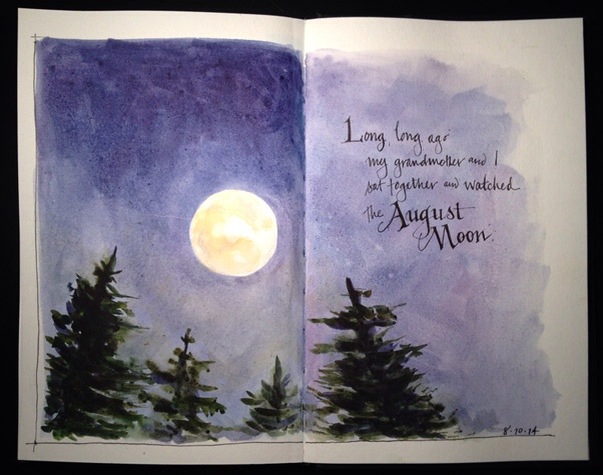 Long, long ago
my grandmother and I
sat together and watched
the August
Moon.
8·10·14